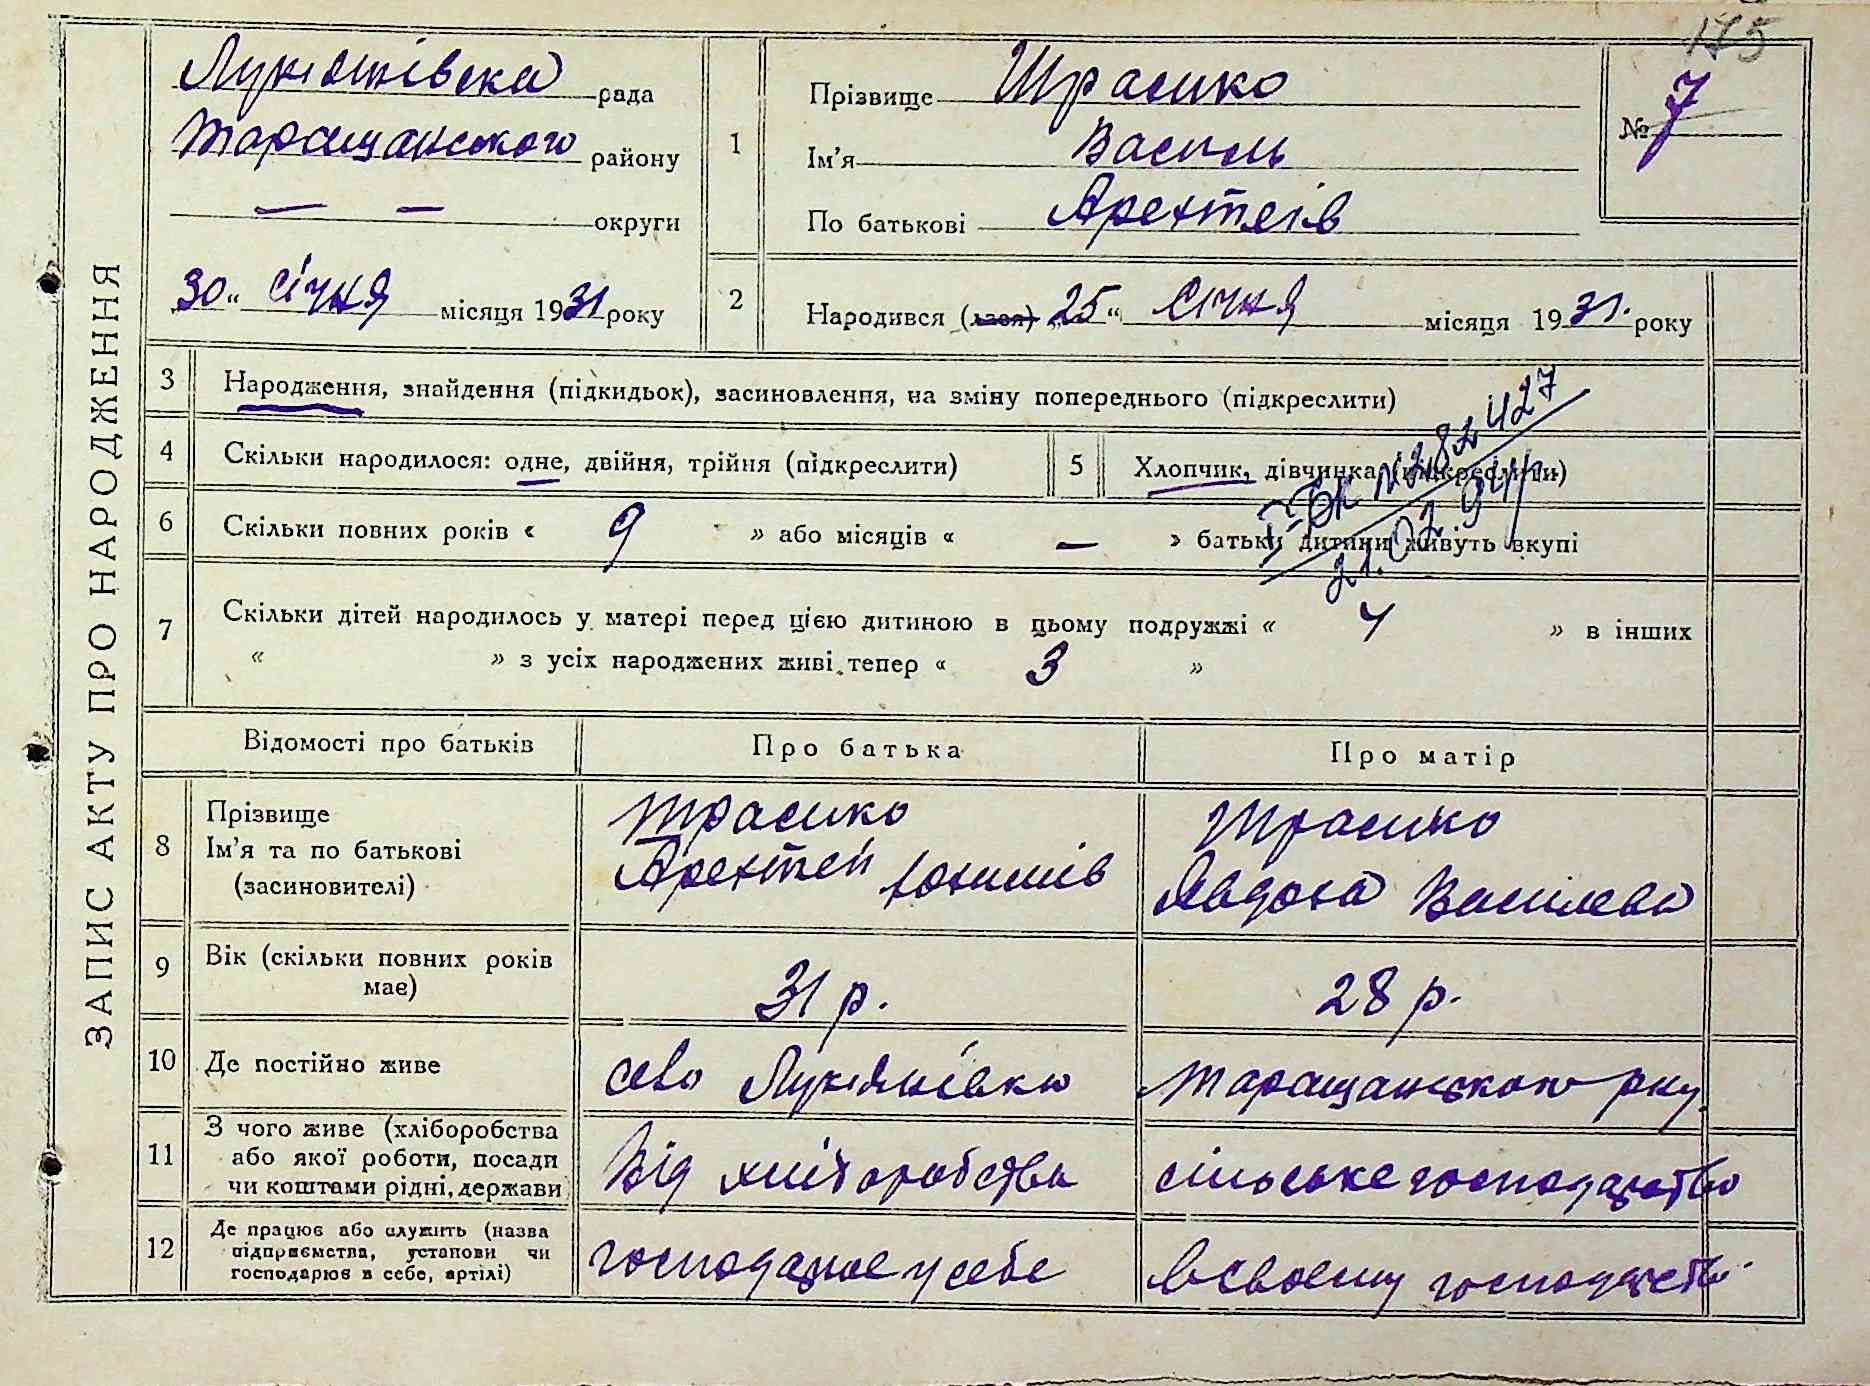 175
Лукянівска рада
Таращанського району
— — округи
30 „ січня місяця 1931 року
1
Прізвище Трасико
Ім'я Василь
По батькові Арехтеів
№ 7
2
Народився (лася) „25“ Січня місяця 1931. року
ЗАПИС АКТУ ПРО НАРОДЖЕННЯ
3 Народження, знайдення (підкидьок), засиновлення, на зміну попереднього (підкреслити)
4 Скільки народилося: одне, двійня, трійня (підкреслити)
5 Хлопчик, дівчинка (підкреслити)
№ 282427
21.02.94
6 Скільки повних років « 9 » або місяців « — » батьки дитини живуть вкупі
7 Скільки дітей народилось у матері перед цією дитиною в цьому подружжі « 4 » в інших
« » з усіх народжених живі тепер « 3 »
Відомості про батьків Про батька Про матір
8 Прізвище
Ім'я та по батькові
(засиновителі)
Трасико
Арехтей Юхимів
Трасико
Явдоха Василева
9 Вік (скільки повних років
має)
31 р.
28 р.
10 Де постійно живе
село Лукянівка
Таращанського р-ну
11 З чого живе (хліборобства
або якої роботи, посади
чи коштами рідні, держави
Від хліборобства
сільське господарство
12 Де працює або служить (назва
підприємства, установи чи
господарює в себе, артілі)
господарює у себе
в своему господарстві